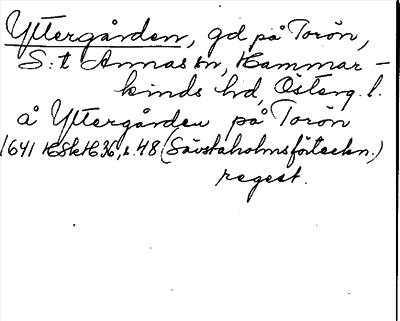 Yttergården, gd på Torön,
S:t Annas sn, Hammar-
kinds hd, Österg. l.
å Yttergården på Torön
1641 HSkH 36, s. 48 (Sävstaholmsförteckn.)
regest.